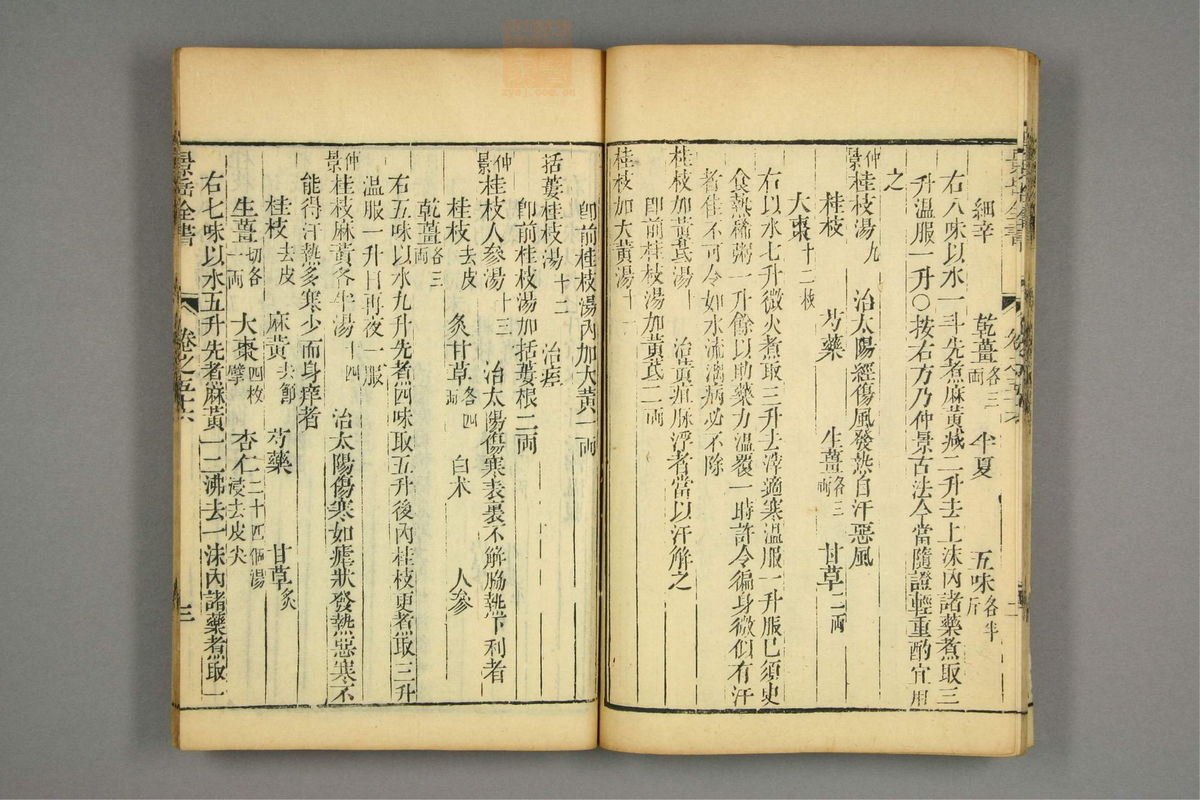 細辛　乾薑各三両　半夏　五味各半斤
右八味以水一斗先煮麻黃減二升去上沫內諸藥煮取三
升温服一升〇按右方乃仲景古法今當隨證輕重酌宜用
之
仲景桂枝湯九　治太陽經傷風發熱自汗惡風
桂枝　芍藥　生薑各三両　甘草二両
大棗十二枚
右以水七升微火煮取三升去滓適寒温服一升服已須臾
食熱稀粥一升餘以助藥力温覆一時許令徧身微似有汗
者佳不可令如水流漓病必不除
桂枝加黃芪湯十　治黃疸脉浮者當以汗解之
即前桂枝湯加黃芪二両
桂枝加大黃湯十一
即前桂枝湯內加大黃一両
括蔞桂枝湯十二　治痓
即前桂枝湯加括蔞根二両
仲景桂枝人參湯十三　治太陽傷寒表裏不解脇熱下利者
桂枝去皮　炙甘草各四両　白术　人參
乾薑各三両
右五味以水九升先煮四味取五升後內桂枝更煮取三升
温服一升日再夜一服
仲景桂枝麻黃各半湯十四　治太陽傷寒如瘧狀發熱惡寒不
能得汗熱多寒少而身痒者
桂枝去皮　麻黃去節　芍藥　甘草炙
生薑切各一両　大棗四枚擘　杏仁二十四個湯浸去皮尖
右七味以水五升先煮麻黃一二沸去一沫內諸藥煮取一
景岳全書　卷之五十六　三
zysj.com.cn